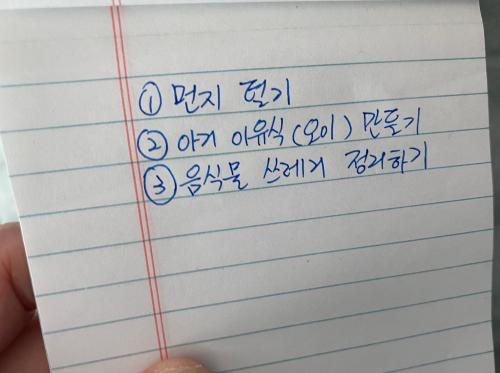 ① 먼지 털기
② 아기 이유식(오이) 만들기
③ 음식물 쓰레기 정리하기